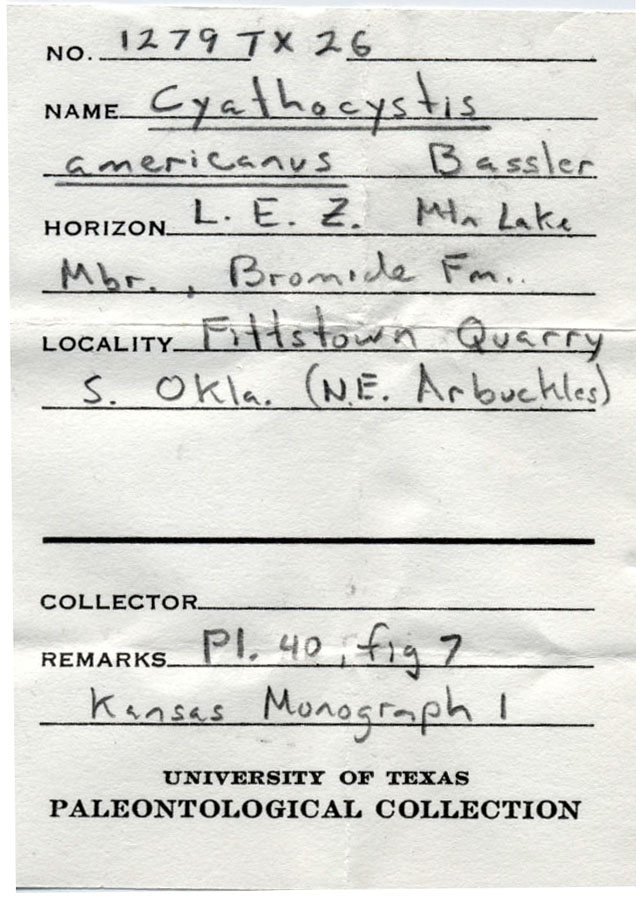 NO. 1279 TX 26
NAME Cyathocystis
americanus Bassler
HORIZON L. E. Z. Mtn Lake
Mbr., Bromide Fm..
LOCALITY Fittstown Quarry
S. Okla. (N.E. Arbuckles)
COLLECTOR
REMARKS Pl. 40, fig 7
Kansas Monograph 1
UNIVERSITY OF TEXAS
PALEONTOLOGICAL COLLECTION